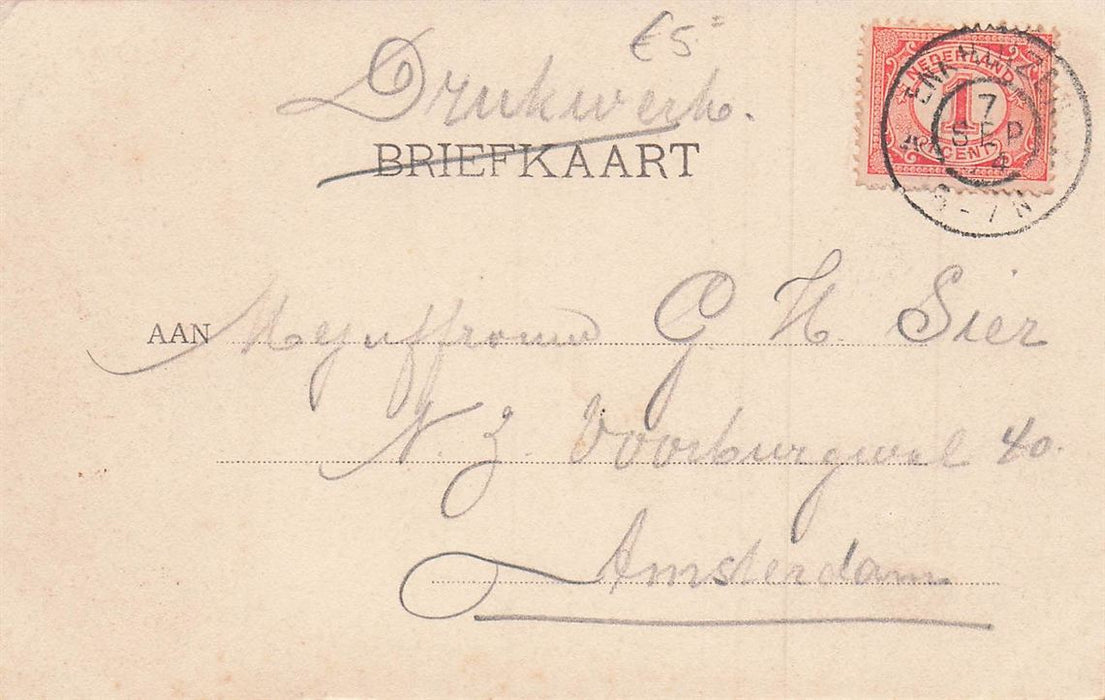 €5=
Drukwerk.
BRIEFKAART
NEDERLAND
1
CENT
ENKHUIZEN
7
SEP
4
6-7N
AAN Mejuffrouw G H Sier
N. Z. Voorburgwal 40.
Amsterdam